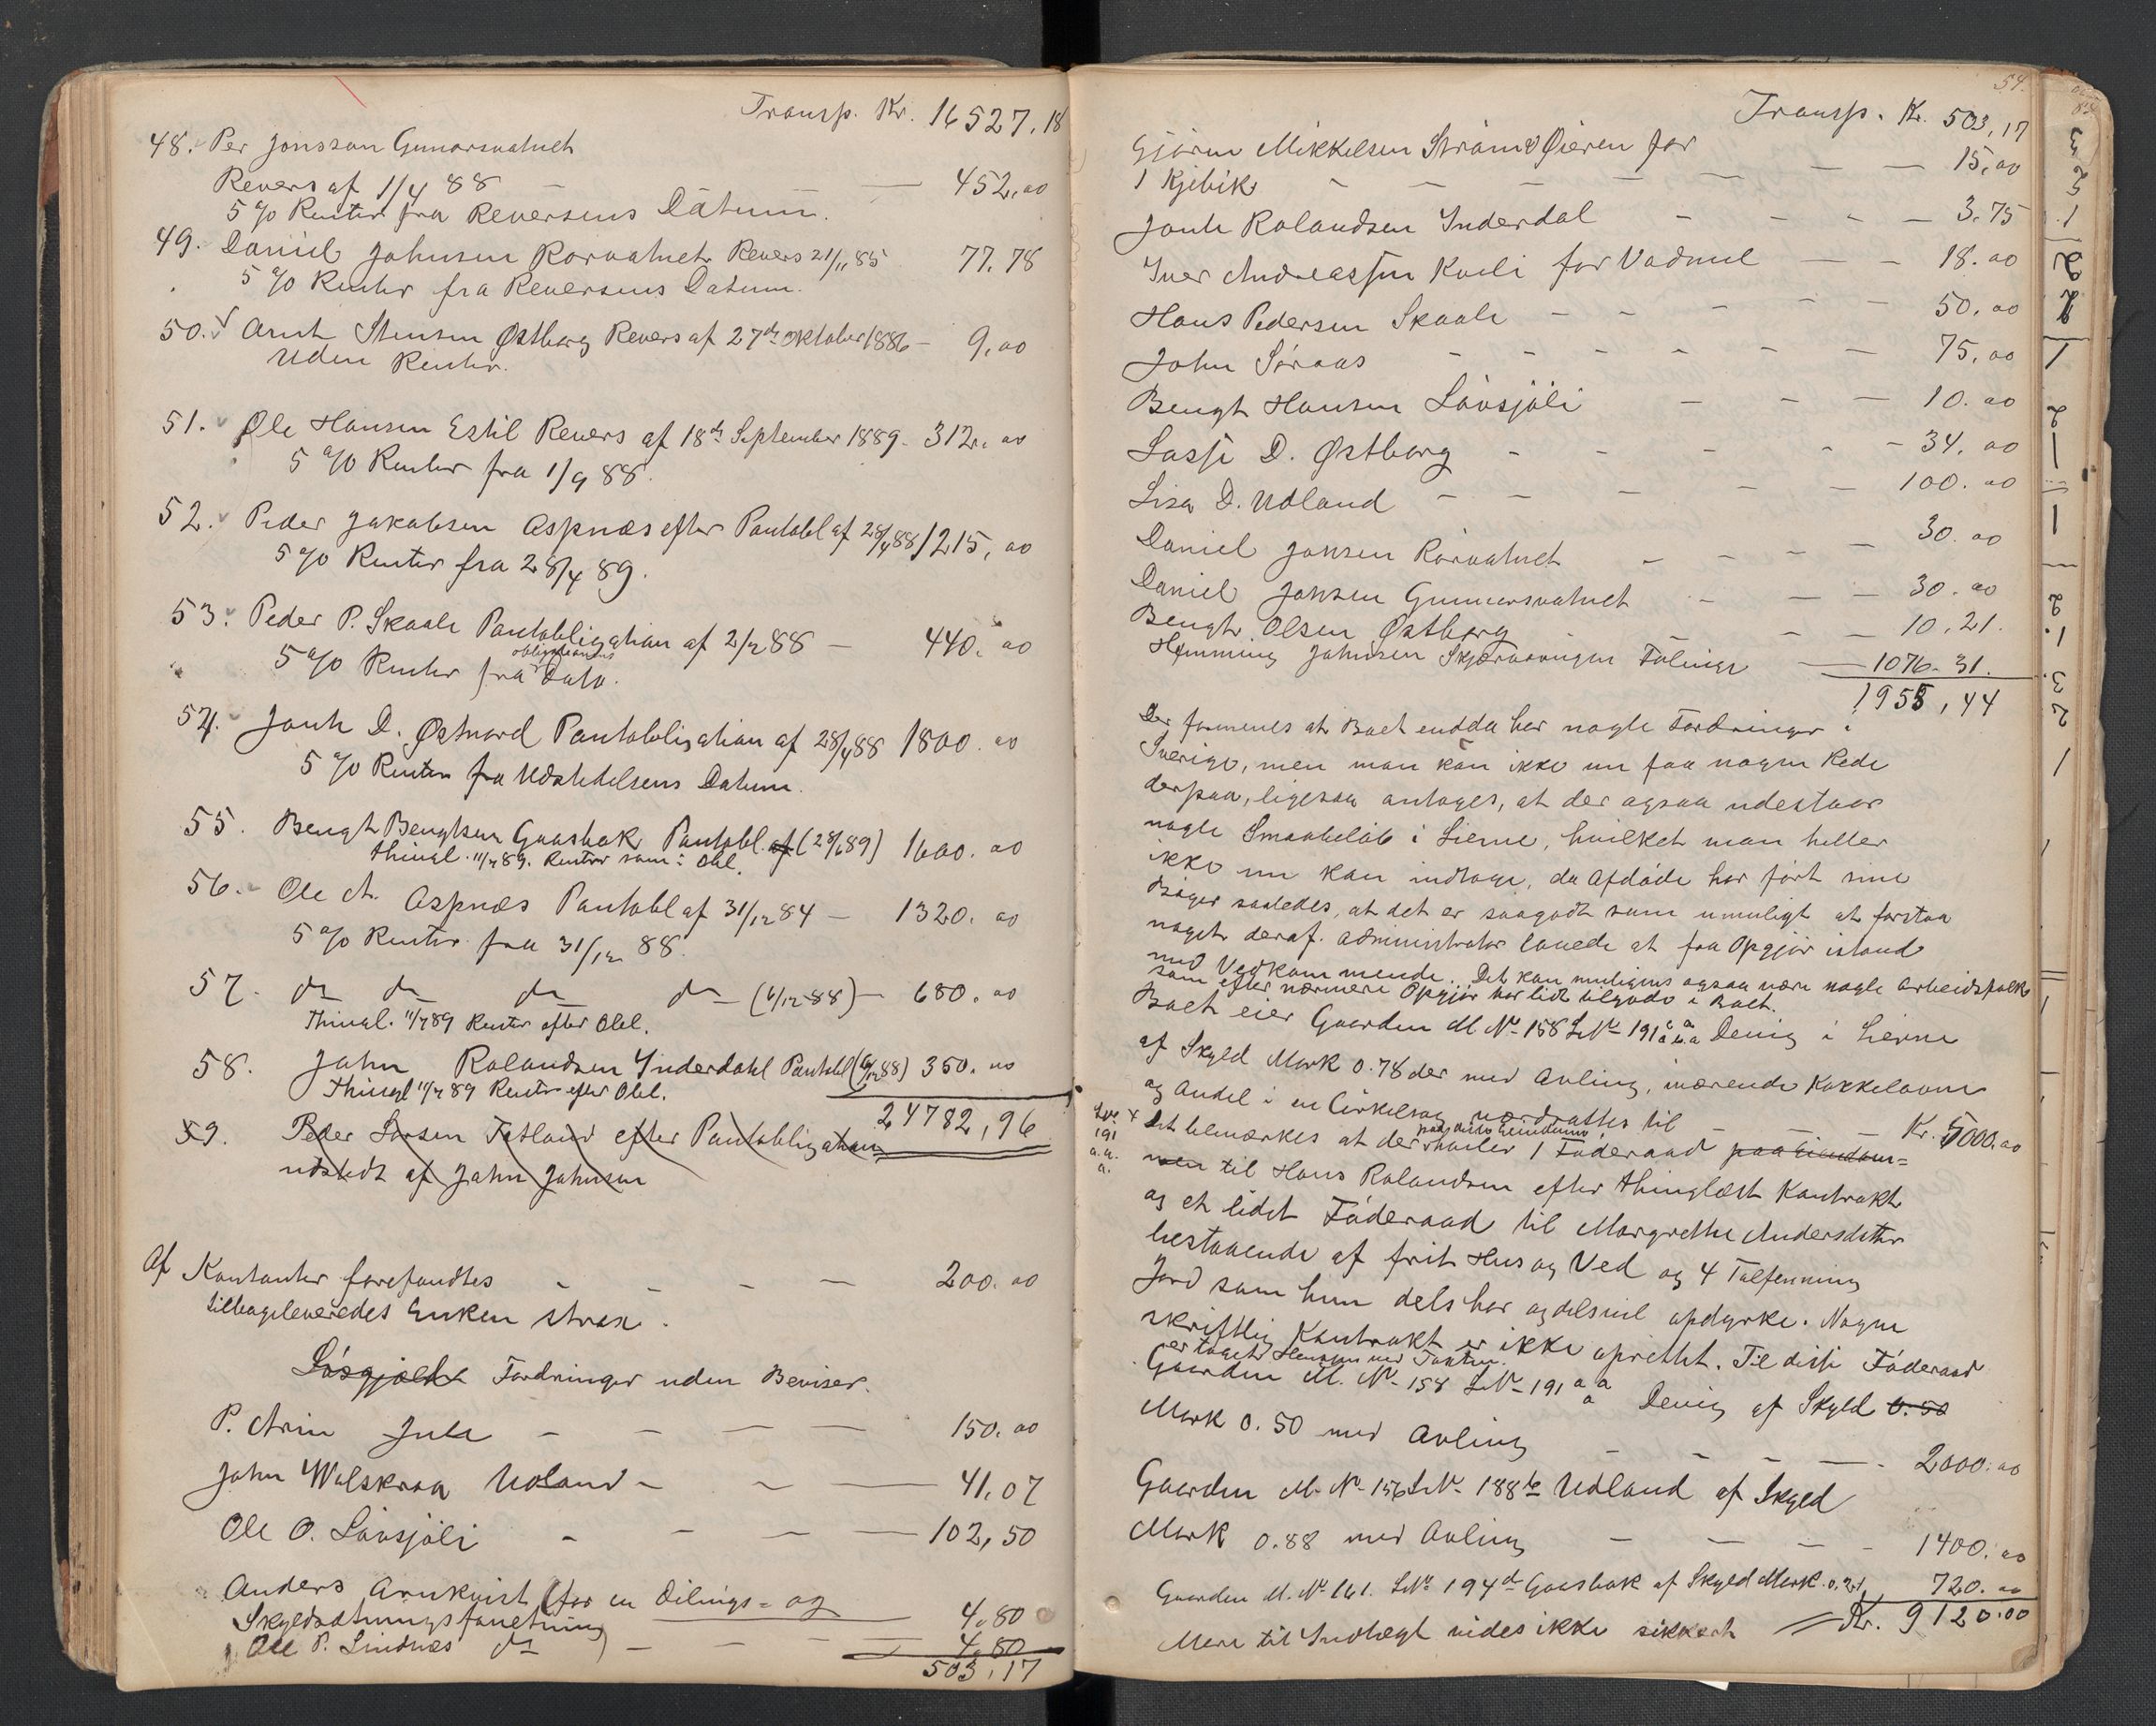 Transp. Kr. 16527,18
48. Per Jonsson Gunarsvatnet
Revers af 1/4 88 — 452,00
5 % Renter fra Reversens Datum.
49. Daniel Johnsen Rørvatnet Revers 21/11 85 77.78
5 % Renter fra Reversens Datum.
50. Arnt Stensen Østborg Revers af 27de Oktober 1886 – 9,00
Uden Renter.
51. Ole Hansen Estil Revers af 18de September 1889 – 312,00
5 % Renter fra 1/9 88.
52. Peder Jakobsen Aspnæs efter Pantobl af 28/4 88 1215,00
5 % Renter fra 28/4 89.
53. Peder P. Skaale Pantobligation af 2/12 88 — 440,00
obligationens
5 % Renter fra Dato.
54. Jonte D. Østnord Pantobligation af 28/4 88 1800.00
5 % Renter fra Udstedelsens Datum.
55. Bengt Bengtsen Gaasbak Pantobl. af (28/6 89) 1600.00
Thingl. 11/7 89. Renter som i Obl.
56. Ole A. Aspnæs Pantobl af 31/12 84 — 1320.00
5 % Renter fra 31/12 88.
57. do do do do (6/12 88) — 680.00
Thingl. 11/7 89 Renter efter Obl.
58. John Rolandsen Ynderdahl Pantobl (6/12 88) 350.00
Thingl 11/7 89 Renter efter Obl.
24782,96
59. Peder Larsen Totland efter Pantobligation
udstedt af John Johnsen
Af Kontanter forefandtes – – – — 200.00
tilbageleveredes Enken strax.
Løsgjæld Fordringer uden Beviser.
P. Arim Jule – – — — 150.00
John Walskraa Udland – – — 41,07
Ole O. Løvsjøli – – — — 102,50
Anders Arnkvist (for en Delings- og
Skyldsætningsforretning — 4,80
Ole P. Lindnæs do ) – – — 4,80
503,17
54.
Transp. Kr. 503,17
Gjørn Mikkelsen Strøm & Øieren for
1 Kjebik – – – — — 15,00
Jonte Rolandsen Ynderdal – – – — 3.75
Iver Andreassen Kveli for Vadmel — – 18.00
Hans Pedersen Skaale – – – – — 50,00
John Søraas – – – – – — 75,00
Bengt Hansen Løvsjøli – – — 10.00
Lasse D. Østborg – – – – 34,00
Lisa D. Udland – – – – — 100.00
Daniel Jonsen Rørvatnet – – – — 30.00
Daniel Jonsen Gunnarsvatnet – — — 30.00
Bengt Olsen Østborg – — 10,21.
Hemming Johnsen Skjærvaangen Tolinge — 1076.31.
1955,44
Der formenes at Boet endda har nogle Fordringer i
Sverige, men man kan ikke nu faa nogen Rede
derpaa, ligesaa antages, at der ogsaa udestaar
nogle Smaabeløb i Lierne, hvilket man heller
ikke nu kan indtage, da Afdøde har ført sine
Bøger saaledes, at det er saagodt som umuligt at forstaa
noget deraf. Administrator lovede at faa Opgjør istand
med Vedkommende. Det kan muligens ogsaa være nogle Arbeidsfolk
som efter nærmere Opgjør har lidt tilgode i Boet.
Boet eier Gaarden M. No 158 L No 191 a a a Devig i Lierne
af Skyld Mark 0.78 der med Avling, inværende Kakkelovne
og Andel i en Cirkelsag værdsattes til – – — Kr. 5000.00
Lno 191 a.a. a.
Det bemærkes at der paa denne Eiendom hviler 1 Føderaad paa Eiendom-
men til Hans Rolandsen efter thinglæst Kontrakt
og et lidet Føderaad til Margrethe Andersdatter
bestaaende af frit Hus og Ved og 4 Tolfenning
Jord som hun dels har og dels vil opdyrke. Nogen
skriftlig Kontrakt er ikke oprettet. Til disse Føderaad
er taget Hensyn ved Taxten.
Gaarden M. No 158 L No 191 a a a Devig af Skyld 0.50
Mark 0.50 med Avling – – – — 2000.00
Gaarden M. No 156 L No 188 b Udland af Skyld
Mark 0.88 med Avling – — – – 1400.00
Gaarden M. No 161. L No 194 d Gaasbak af Skyld Mark 0.21 720.00
Mere til Indtægt vides ikke sikkert Kr. 9120.00